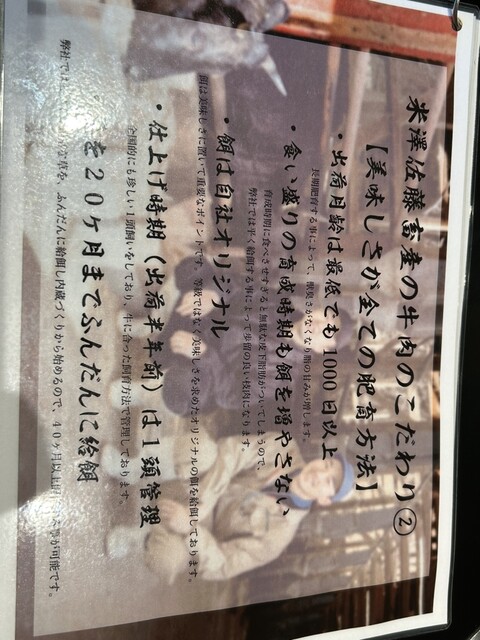 米澤佐藤畜産の牛肉のこだわり②
【美味しさが全ての肥育方法】
・出荷月齢は最低でも1000日以上
長期肥育する事によって、獣臭さがなくなり脂の甘みが増します。
・食い盛りの育成時期も餌を増やさない
育成時期に食べさせすぎると無駄な皮下脂肪がついてしまうので、
弊社では早く給餌する事によって歩留の良い枝肉になります。
・餌は自社オリジナル
餌は美味しさに置いて重要なポイントです。等級ではなく美味しさを求めたオリジナルの餌を給餌しております。
・仕上げ時期（出荷半年前）は1頭管理
全国的にも珍しい1頭飼いをしており、牛に合った飼育方法で管理しております。
を20ケ月までふんだんに給餌
弊社では 草を、ふんだんに給餌し内蔵づくりから始めるので、40ケ月以上 事が可能です。